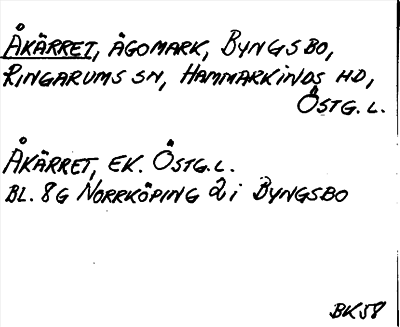 ÅKÄRRET, ÄGOMARK, BYNGSBO,
RINGARUMS SN, HAMMARKINDS HD,
ÖSTG. L.
ÅKÄRRET, EK. ÖSTG. L.
BL. 8G NORRKÖPING 2i BYNGSBO
BK58